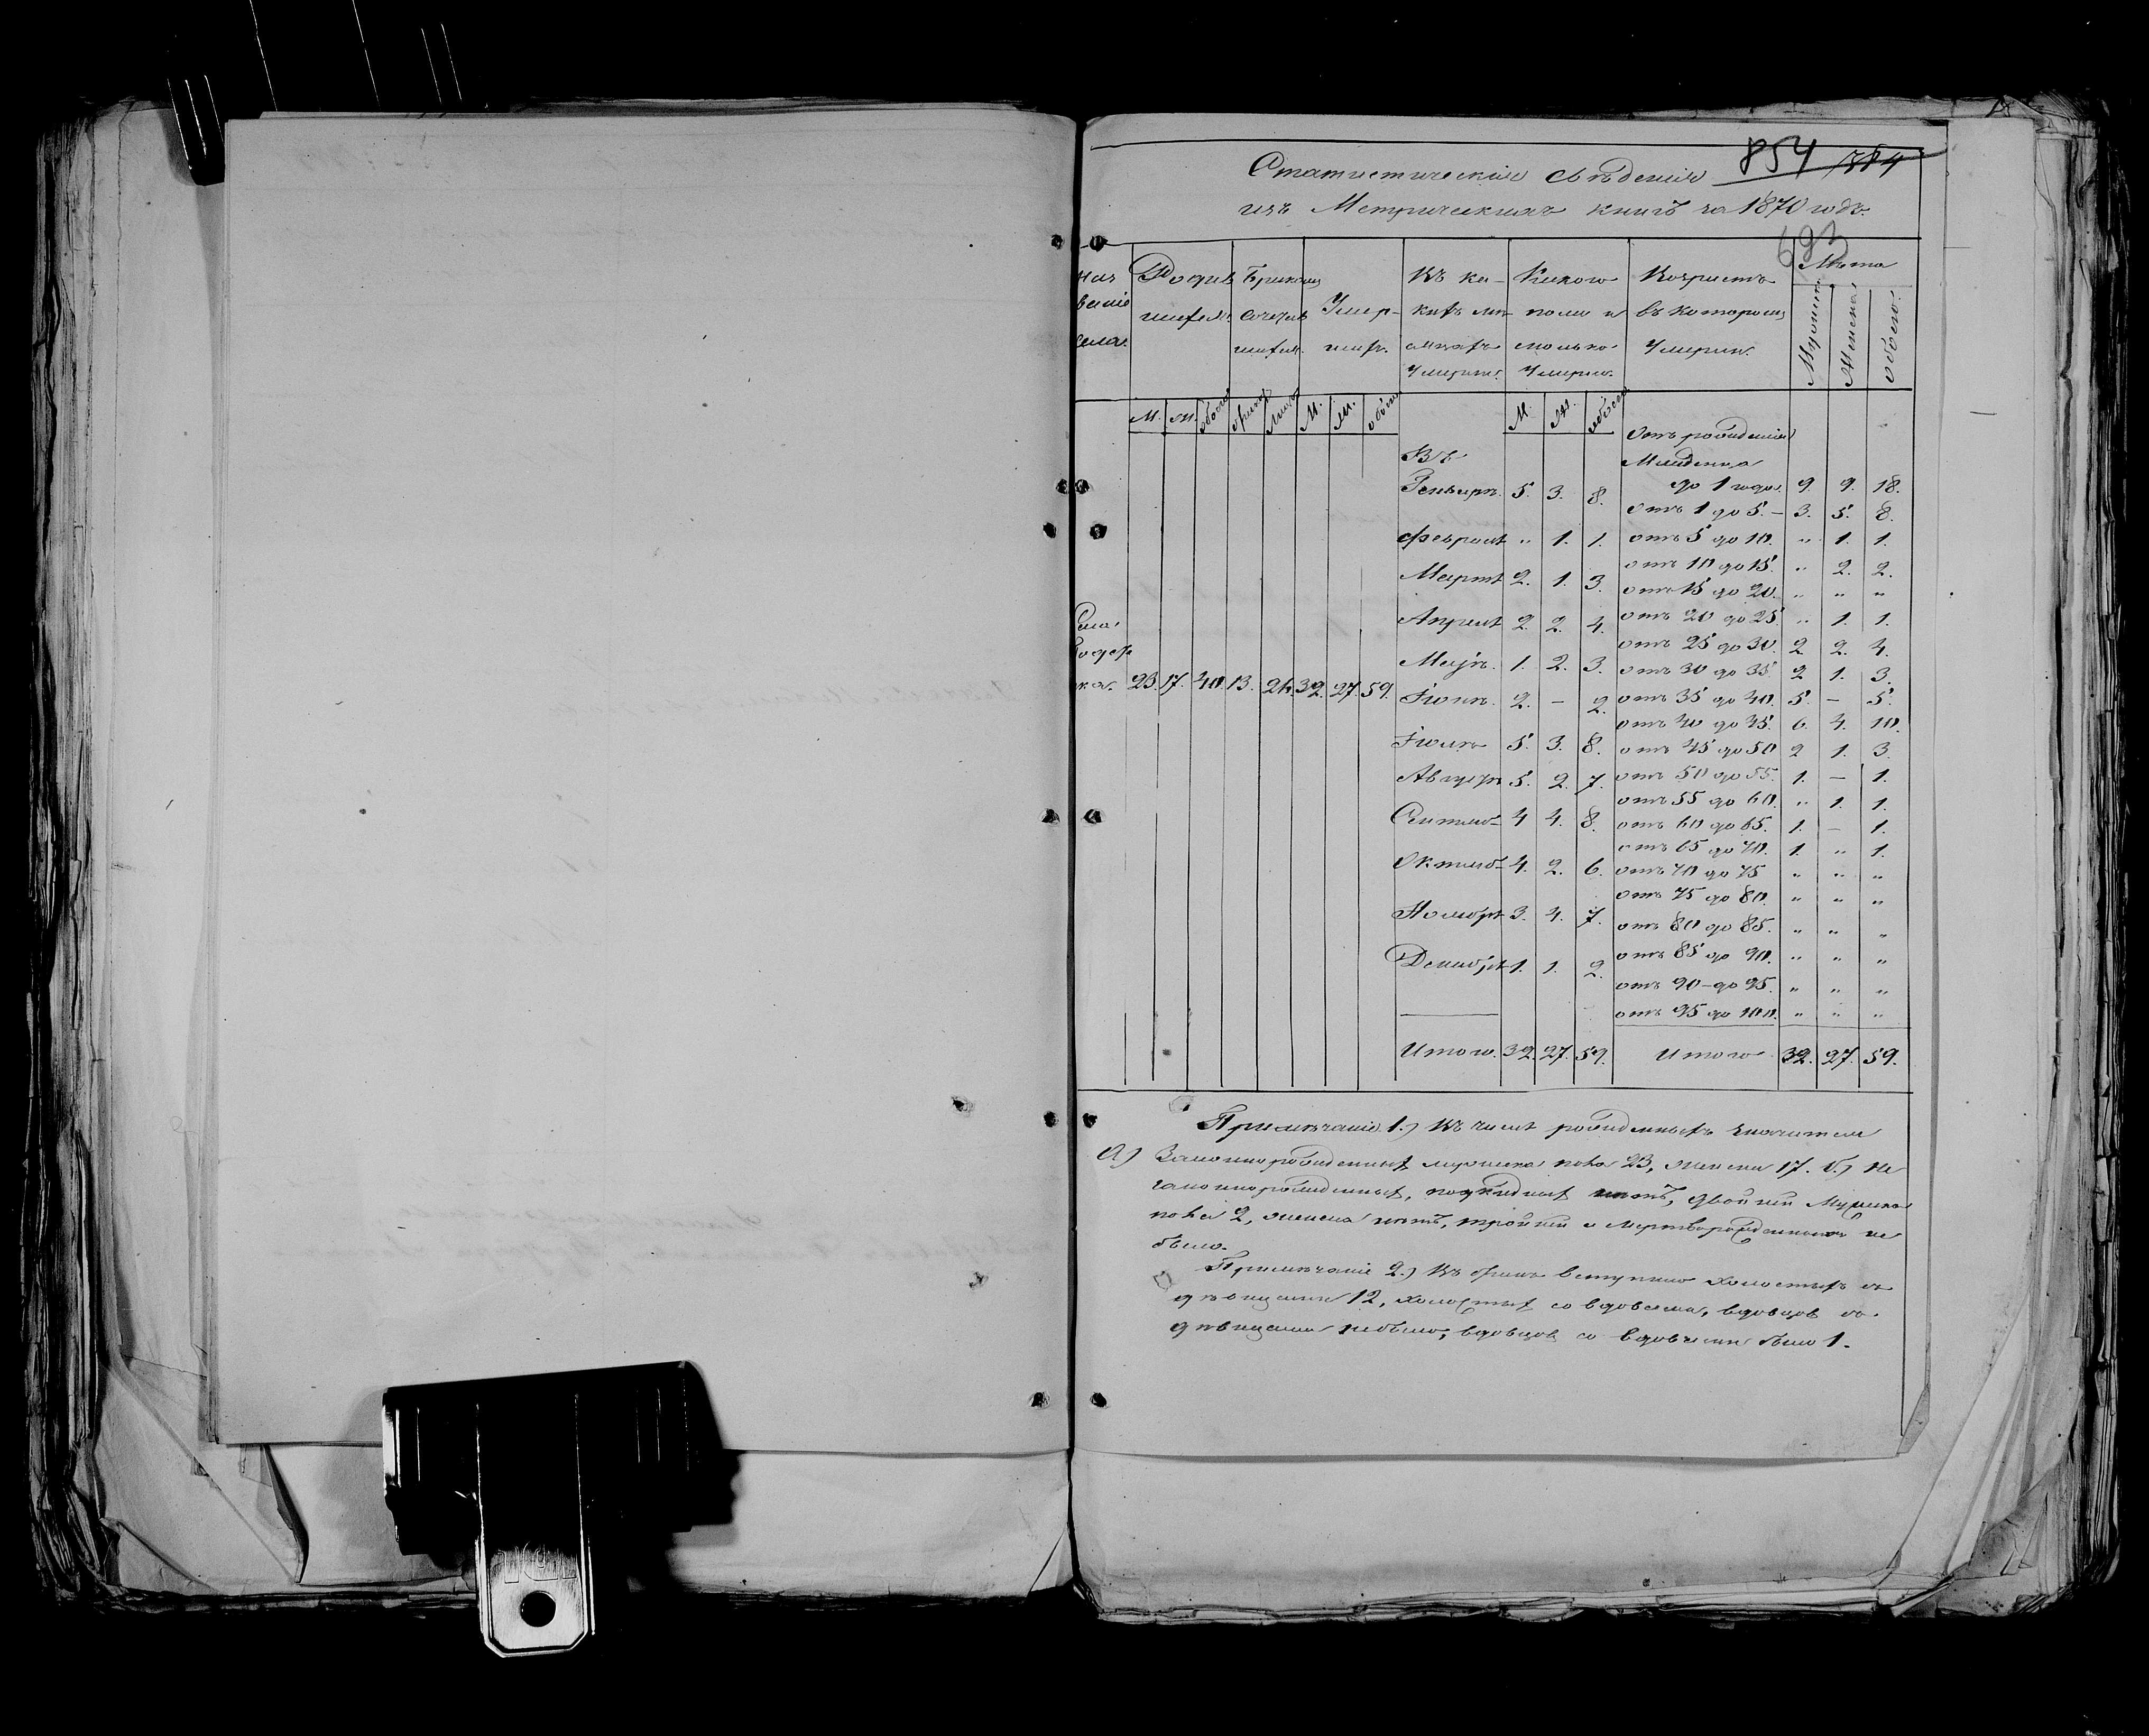 854 384
Статистическія свѣденія
изъ Метрическихъ книгъ за 1870 годъ.
693
Наз Родив Бракомъ Въ ка- Какого Возрастъ Лѣта
ваніе шихся. сочетав Умер- кихъ мѣ- пола и въ которомъ Мужеска Женска обоего.
села. шихся. шихъ. сяцахъ сколько Умерли.
Умерли. Умерло.
М. Ж. обоего браковъ лицъ М. Ж. обоего М. Ж. обоего Отъ рожденія
Въ Младенца
Генварѣ. 5. 3. 8. до 1 года. 9. 9. 18.
отъ 1 до 5. – 3. 5. 8.
Февралѣ „ 1. 1. отъ 5 до 10. „ 1. 1.
отъ 10 до 15. „ 2. 2.
Мартѣ 2. 1. 3. отъ 15 до 20. „ „ „
Села Апрелѣ 2. 2. 4. отъ 20 до 25. „ 1. 1.
отъ 25 до 30. 2 2. 4.
Маѣ. 1. 2. 3. отъ 30 до 35 2 1. 3.
23. 17. 40. 13. 26. 32. 27. 59. Іюнѣ. 2. – 2. отъ 35 до 40. 5. – 5.
отъ 40 до 45. 6. 4. 10.
Іюлѣ 5. 3. 8. отъ 45 до 50 2 1. 3.
Августѣ 5. 2. 7. отъ 50 до 55. 1. – 1.
отъ 55 до 60. „ 1. 1.
Сентяб– 4 4. 8. отъ 60 до 65. 1. – 1.
отъ 65 до 70. 1. „ 1.
Октяб– 4. 2. 6. отъ 70 до 75 „ „ „
отъ 75 до 80. „ „ „
Ноябрѣ 3. 4. 7. отъ 80 до 85. „ „ „
отъ 85 до 90. „ „ „
Декабрѣ 1. 1. 2. отъ 90 – до 95. „ „ „
отъ 95 до 100. „ „ „
Итого. 32. 27. 59. Итого 32. 27. 59.
Примѣчаніе 1.) Въ числѣ рожденныхъ значится
а) Законнорожденныхъ мужеска пола 23, женска 17. б) Не
законнорожденныхъ, подкидныхъ нѣтъ, двойни Мужеска
пола 2, женска нѣтъ, тройни и мертворожденныхъ не
было.
Примѣчаніе 2.) Въ бракъ вступило холостыхъ съ
дѣвицами 12, холостыхъ со вдовами, вдовцовъ съ
дѣвицами небыло, вдовцовъ со вдовами было 1.